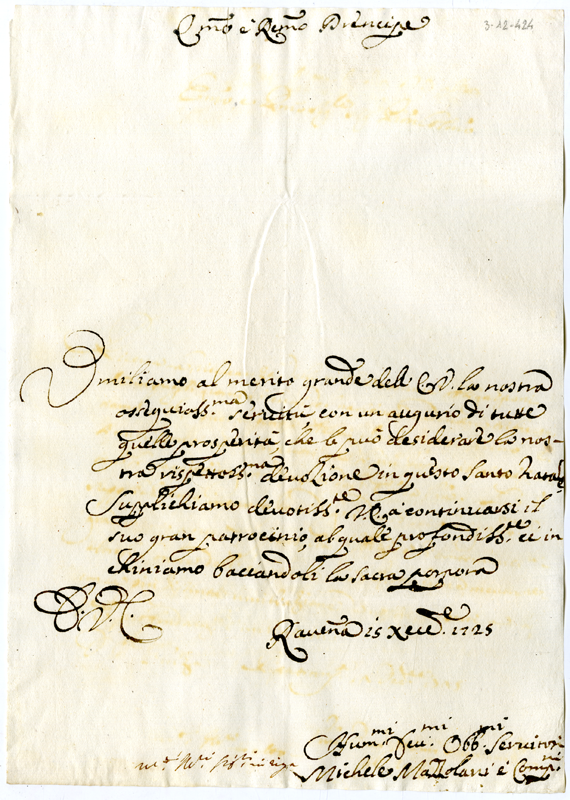 Em̃o e Rem̃o Prencipe
3-12-424
Umiliamo al merito grande dell E.V. la nostra
ossequioss.ma servitù, con un augurio di tutte
quelle prosperità, che le può desiderare la nos-
tra rispettoss.ma devozione in questo Santo Natale
Supplichiamo devotiss.te V.E. a continuarsi il
suo gran patrocinio, al quale profondiss.te ci in
chiniamo baciandoli la sacra porpora
D. V. E.
Raveña 15 Xcem.e 1725
Hum.mi Dev.mi Obb.mi Servitori
Michele Mattolani e Comp.ni